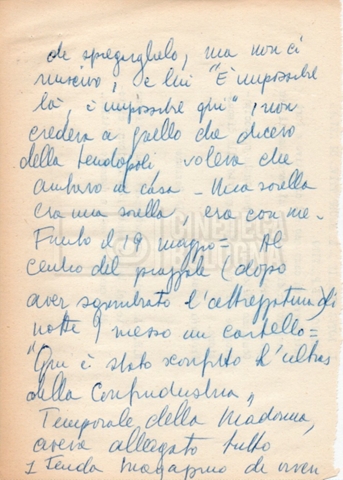 de spiegarglielo, ma non ci
riuscivo, e lui "È impossibile
là, è impossibile qui", non
credeva a quello che dicevo
della tendopoli voleva che
andavo a casa - Mia sorella
era una sorella, era con me -
Finito il 19 maggio = Al
centro del piazzale (dopo
aver sgombrato l'attrezzatura di
notte) messo un cartello =
"Qui è stato sconfitto l'ultras
della Confindustria"
Temporale della Madonna,
aveva allagato tutto
1 tenda magazzino di viveri
CINETECA
BOLOGNA